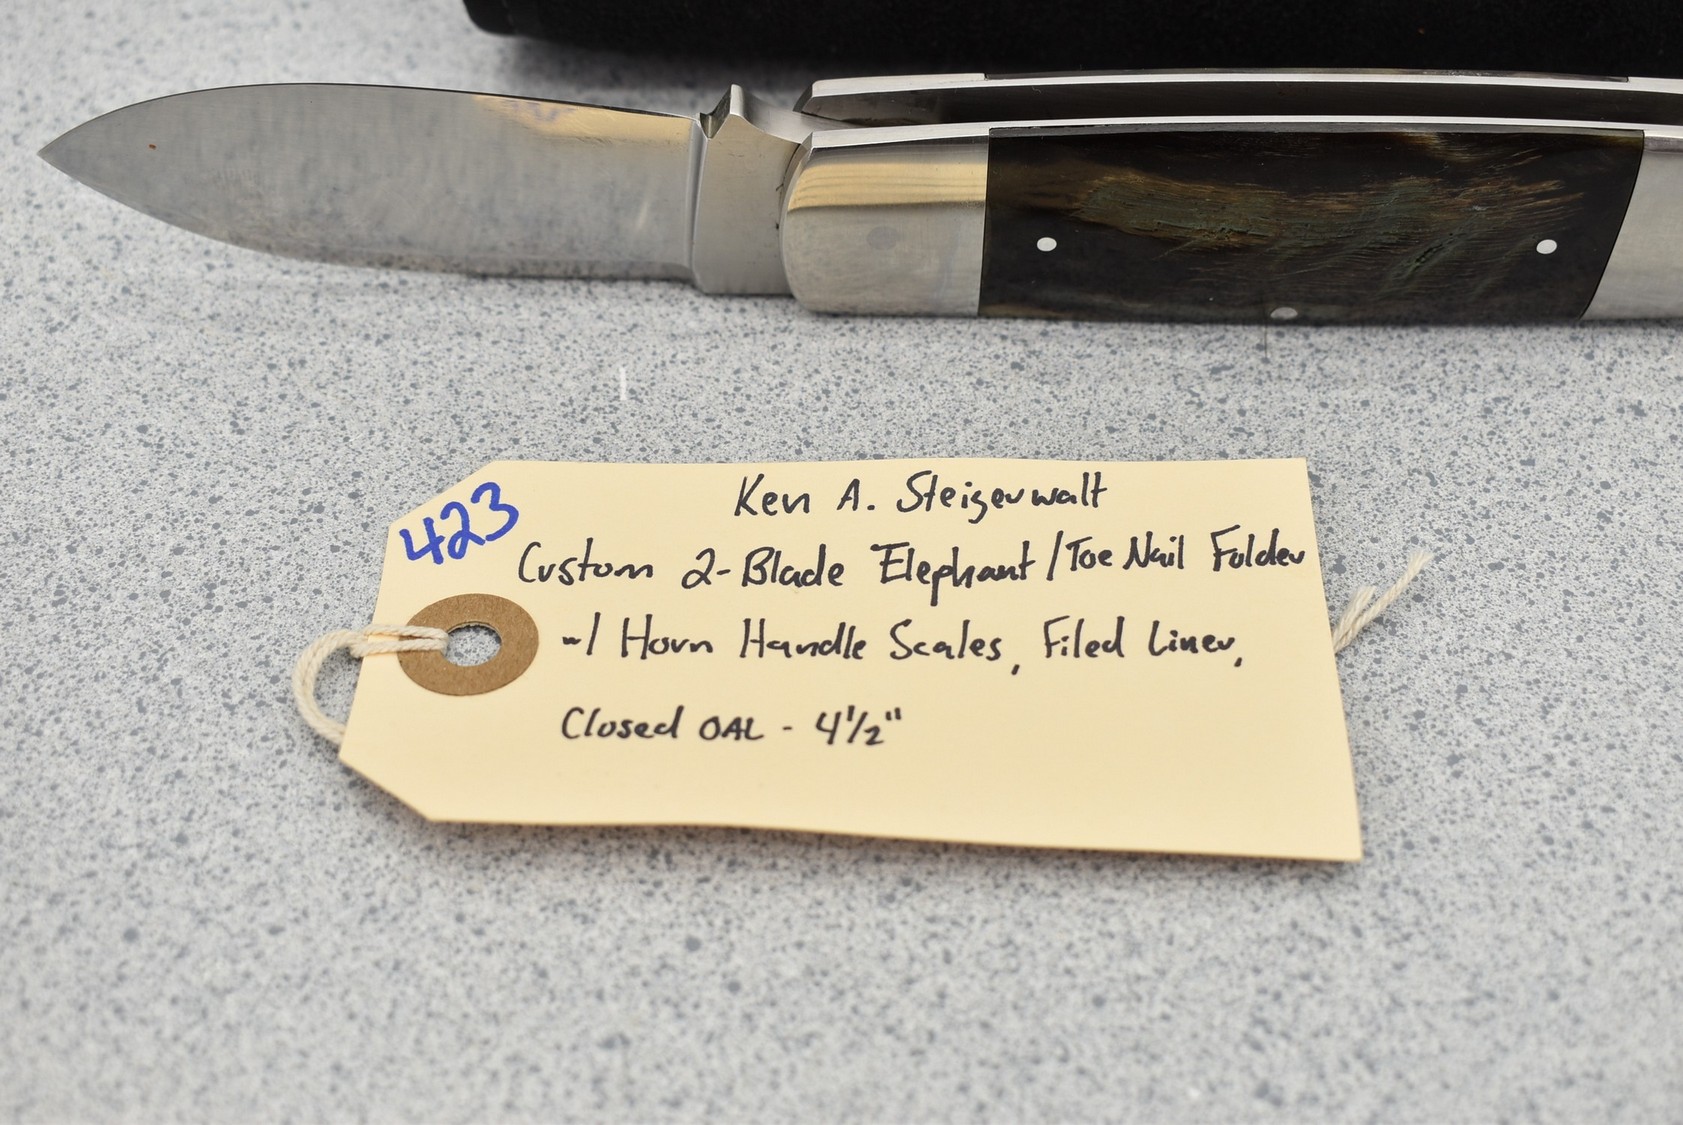 423
Ken A. Steigerwalt
Custom 2-Blade Elephant/Toe Nail Folder
w/ Horn Handle Scales, Filed Liner,
Closed OAL - 4 1/2"